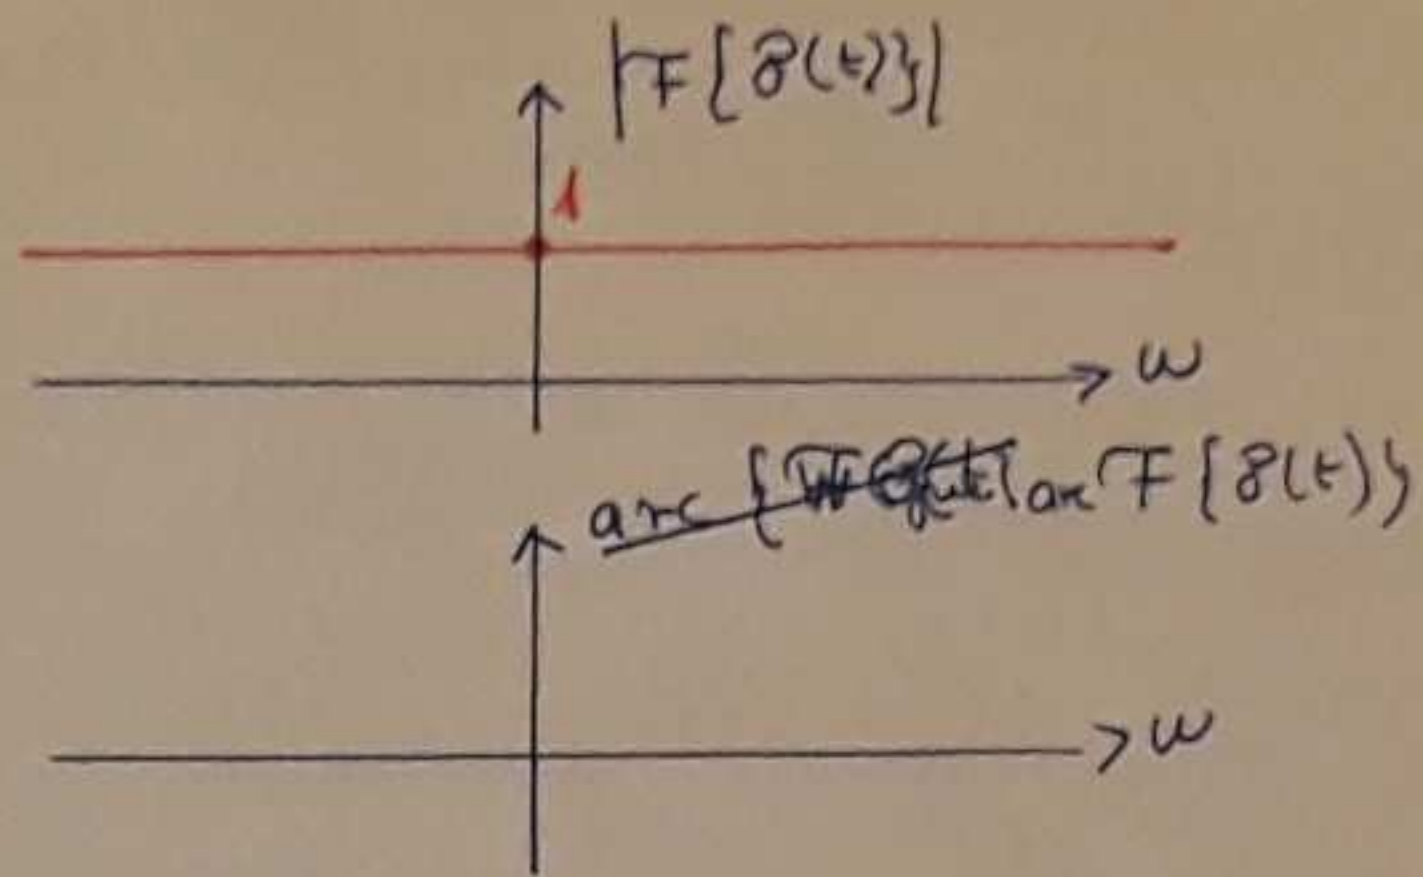 |F{δ(t)}|
1
ω
arc F{δ(t)}
ω